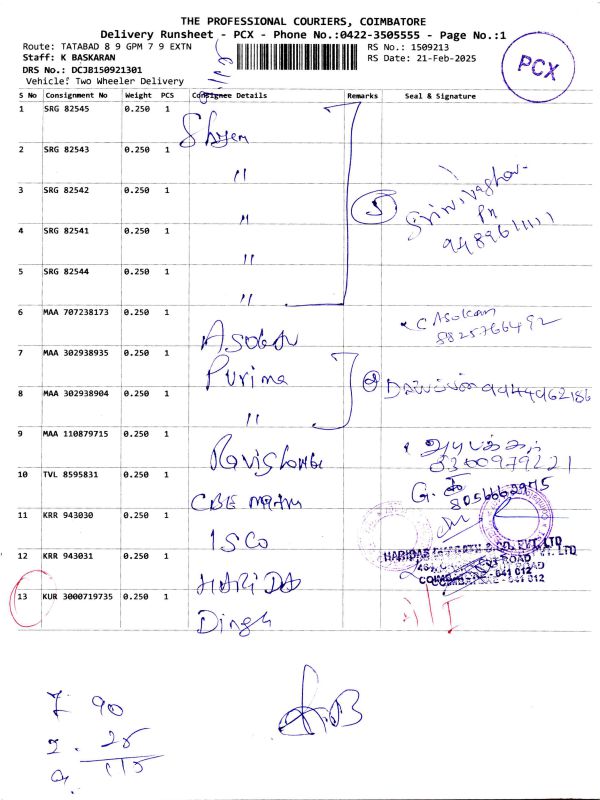 THE PROFESSIONAL COURIERS, COIMBATORE
Delivery Runsheet - PCX - Phone No.:0422-3505555 - Page No.:1
Route: TATABAD 8 9 GPM 7 9 EXTN
RS No.: 1509213
Staff: K BASKARAN
RS Date: 21-Feb-2025
DRS No.: DCJB150921301
Vehicle: Two Wheeler Delivery
PCX
S No Consignment No Weight PCS Consignee Details Remarks Seal & Signature
1 SRG 82545 0.250 1 Shyem
2 SRG 82543 0.250 1 "
3 SRG 82542 0.250 1 " 5
4 SRG 82541 0.250 1 " 9489611111
5 SRG 82544 0.250 1 "
6 MAA 707238173 0.250 1 Asokan C Asokan
8825766492
7 MAA 302938935 0.250 1 Purima
8 MAA 302938904 0.250 1 " 2 9944962186
9 MAA 110879715 0.250 1
10 TVL 8595831 0.250 1 CBE G.
8056662975
11 KRR 943030 0.250 1 ISCO
12 KRR 943031 0.250 1 HARIDA
HARIDAS & CO. PVT. LTD
COIMBATORE - 641 012
13 KUR 3000719735 0.250 1
90
25
115